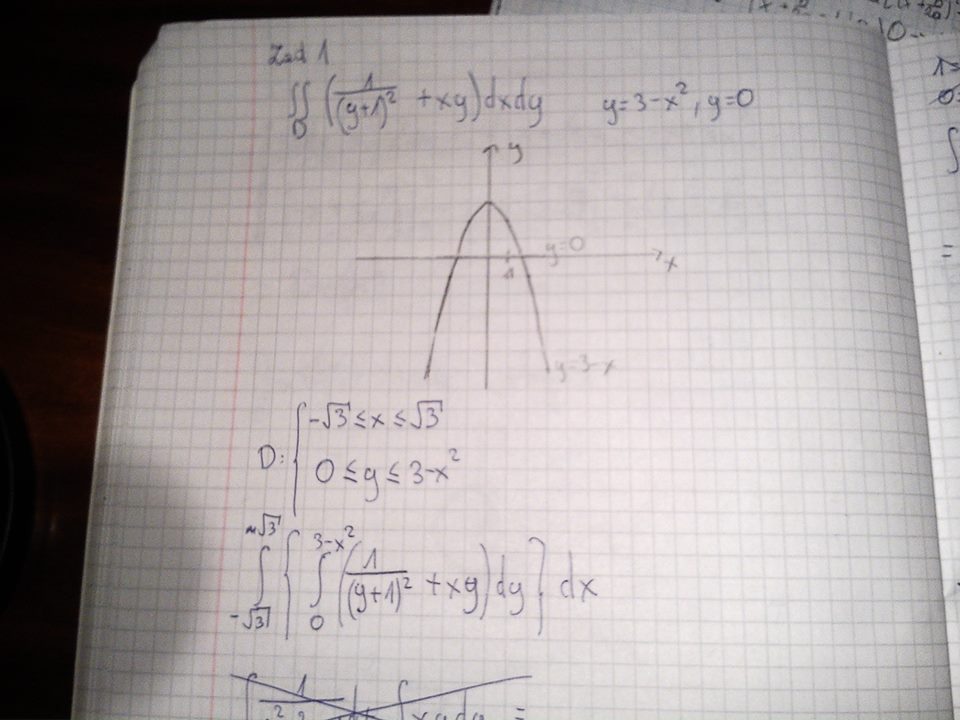 Zad 1
∬ D (1/(y+1)² + xy) dxdy y=3-x², y=0
y
y=0
1
x
y=3-x
D: { -√3 ≤ x ≤ √3
0 ≤ y ≤ 3-x²
∫ -√3 √3 { ∫ 0 3-x² (1/(y+1)² + xy) dy } dx